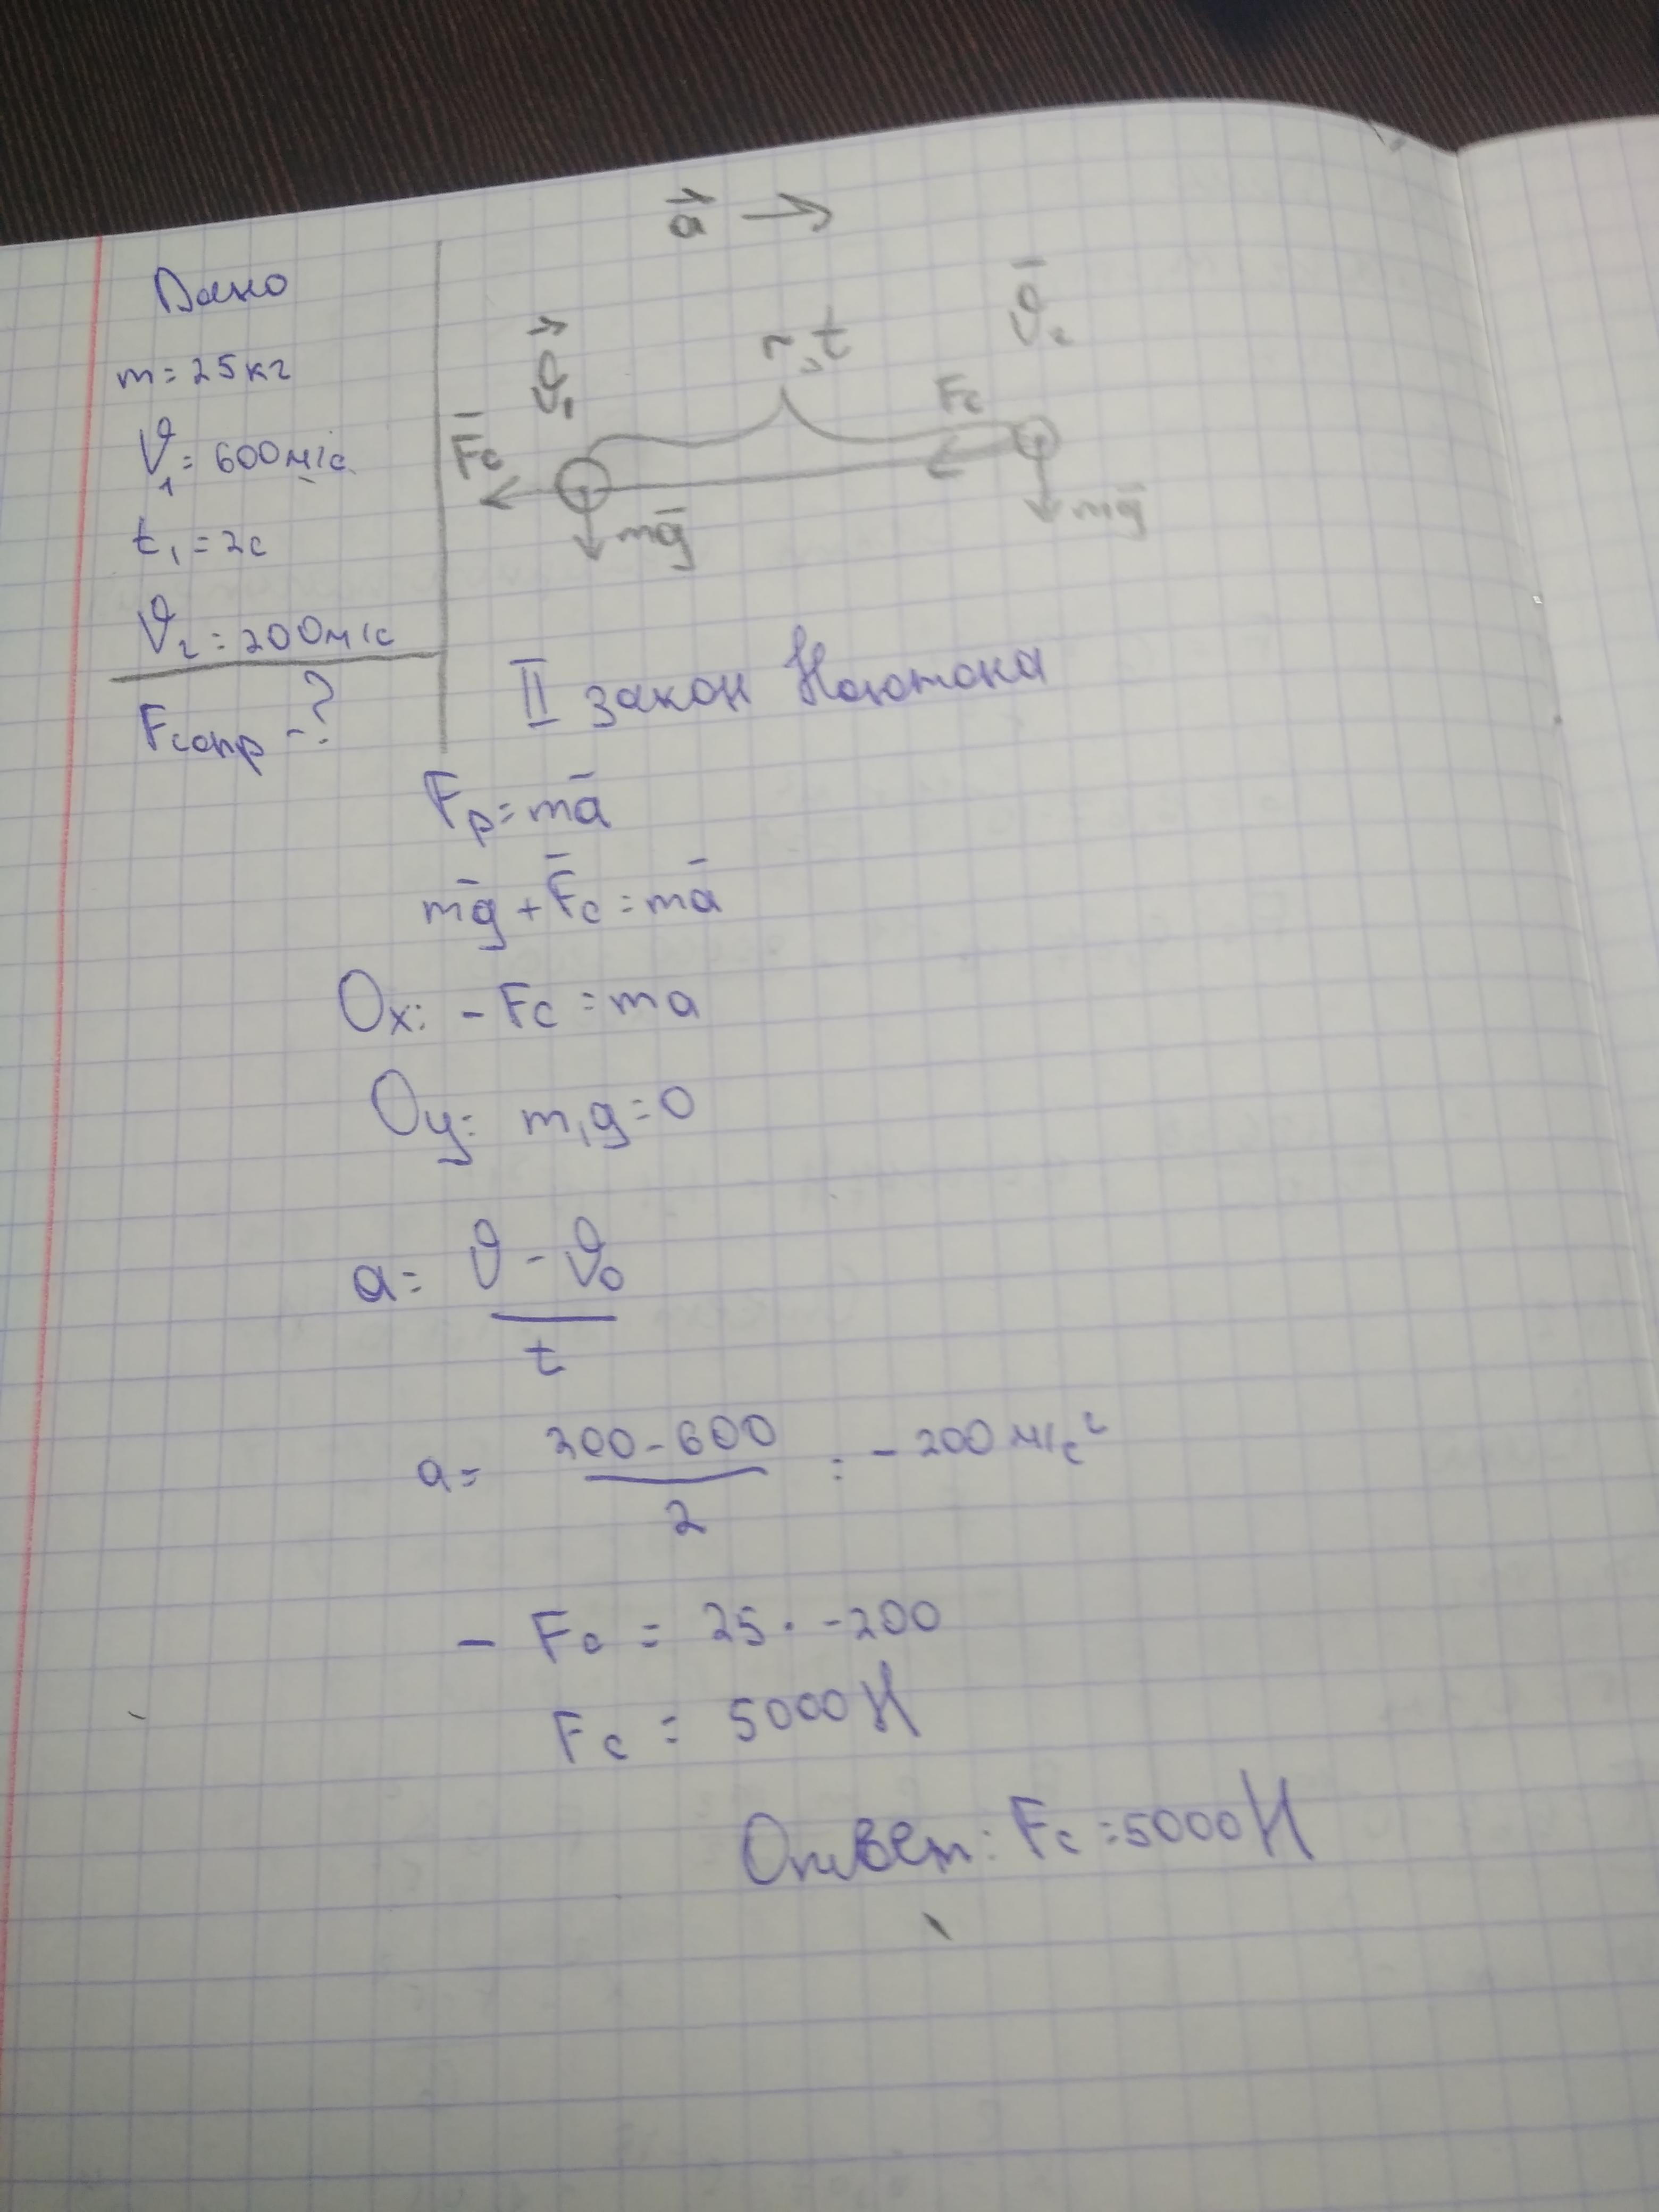 Дано
m = 25 кг
υ₁ = 600 м/с
t₁ = 2с
υ₂ = 200 м/с
Fсопр - ?
a⃗ →
υ⃗₁
υ̅₂
F̅c
Fc
mg̅
mg̅
II закон Ньютона
Fр = ma̅
mg̅ + F̅c = ma̅
Ox: - Fc = ma
Oy: m₁g = 0
a = υ - υ₀
t
a = 200 - 600 = - 200 м/с²
2
- Fc = 25 · -200
Fc = 5000 Н
Ответ: Fc = 5000 Н